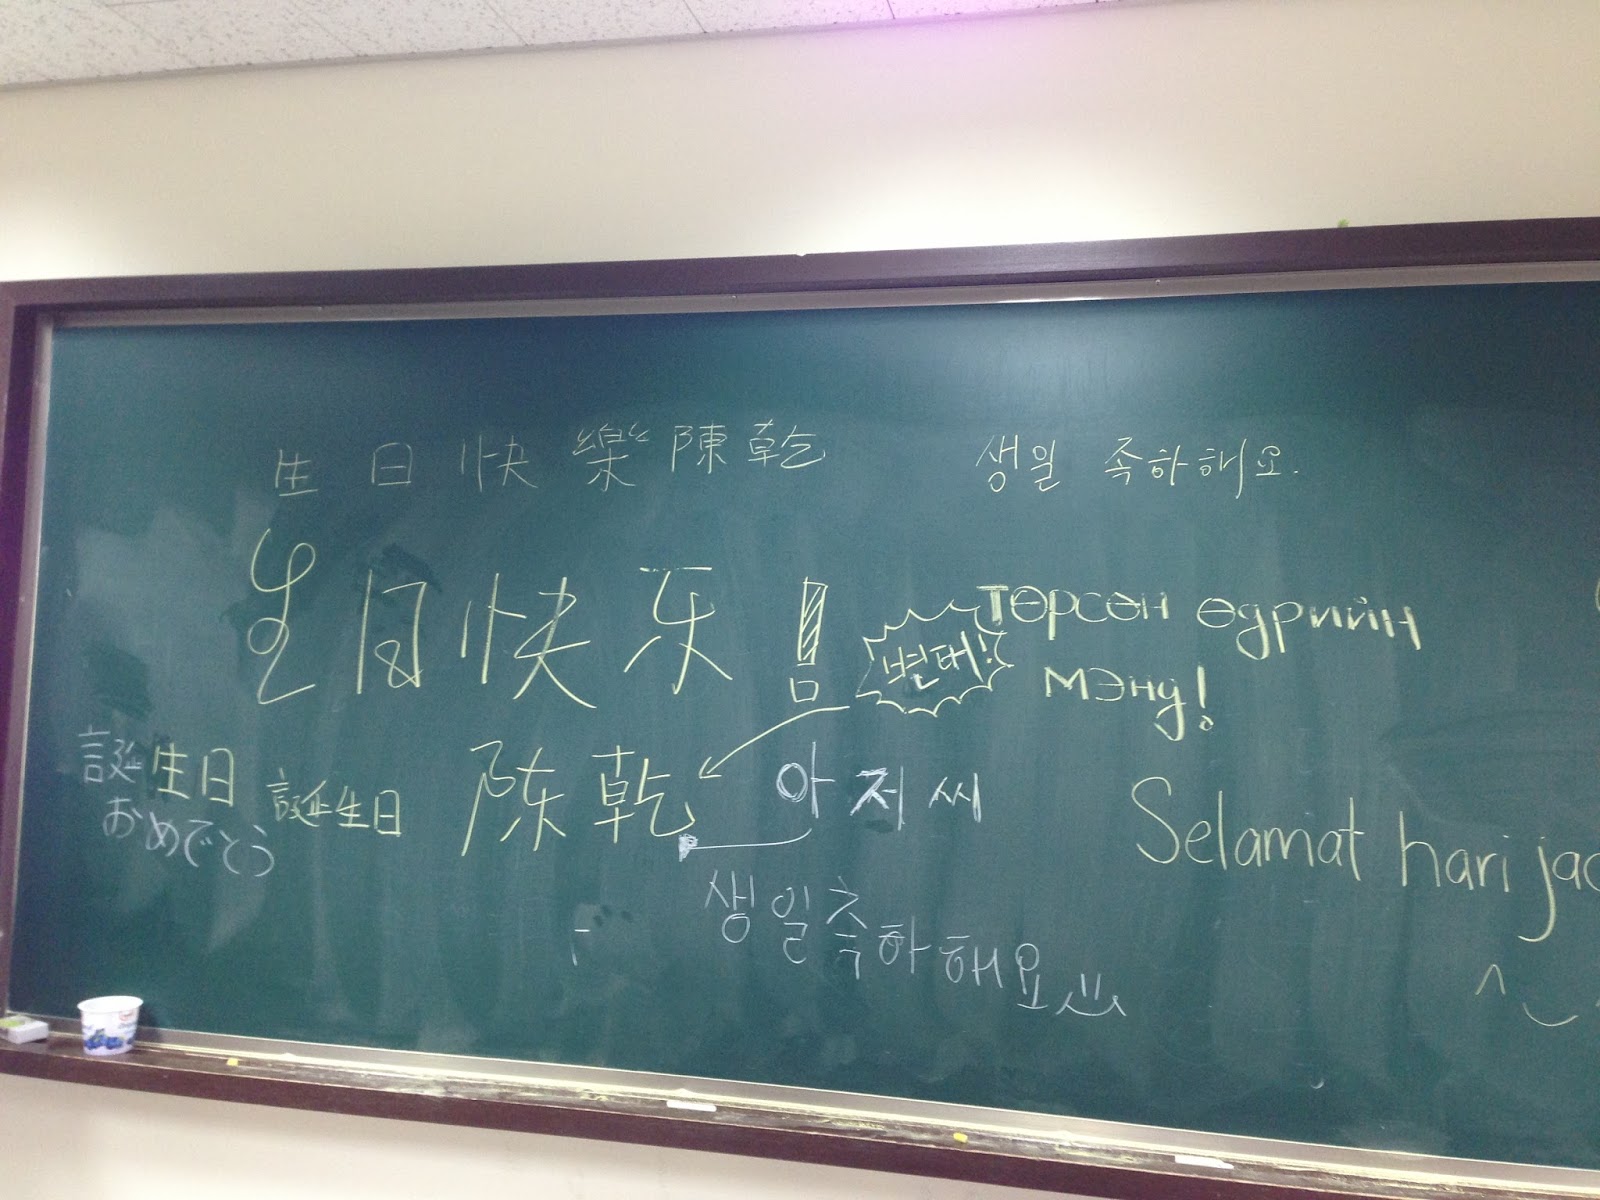 生日快樂陳乾
생일 족하해요.
生日快乐!
변태!
Төрсөн өдрийн
мэнд!
誕生日
おめでとう
誕生日
陈乾
아저씨
Selamat hari
생일축하해요